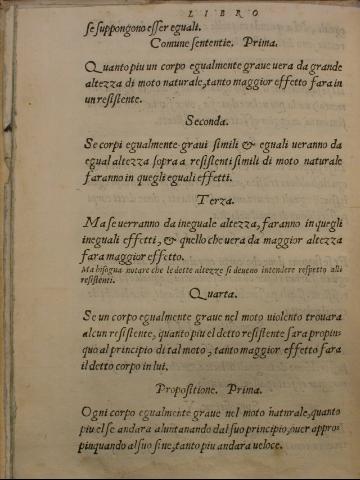 LIBRO
se suppongono esser eguali.
Comune sententie. Prima.
Quanto piu un corpo egualmente graue uera da grande
altezza di moto naturale, tanto maggior effetto fara in
un resistente.
Seconda.
Se corpi egualmente graui simili & eguali ueranno da
egual altezza sopra a resistenti simili di moto naturale
faranno in quegli eguali effetti.
Terza.
Ma se uerranno da ineguale altezza, faranno in quegli
ineguali effetti, & quello che uera da maggior altezza
fara maggior effetto.
Ma bisogna notare che le dette altezze si deueno intendere respetto alli
resistenti.
Quarta.
Se un corpo egualmente graue nel moto uiolento trouara
alcun resistente, quanto piu el detto resistente sara propin=
quo al principio di tal moto, tanto maggior effetto fara
il detto corpo in lui.
Propositione. Prima.
Ogni corpo egualmente graue nel moto naturale, quanto
piu el se andara aluntanando dal suo principio, ouer appro=
pinquando al suo fine, tanto piu andara ueloce.